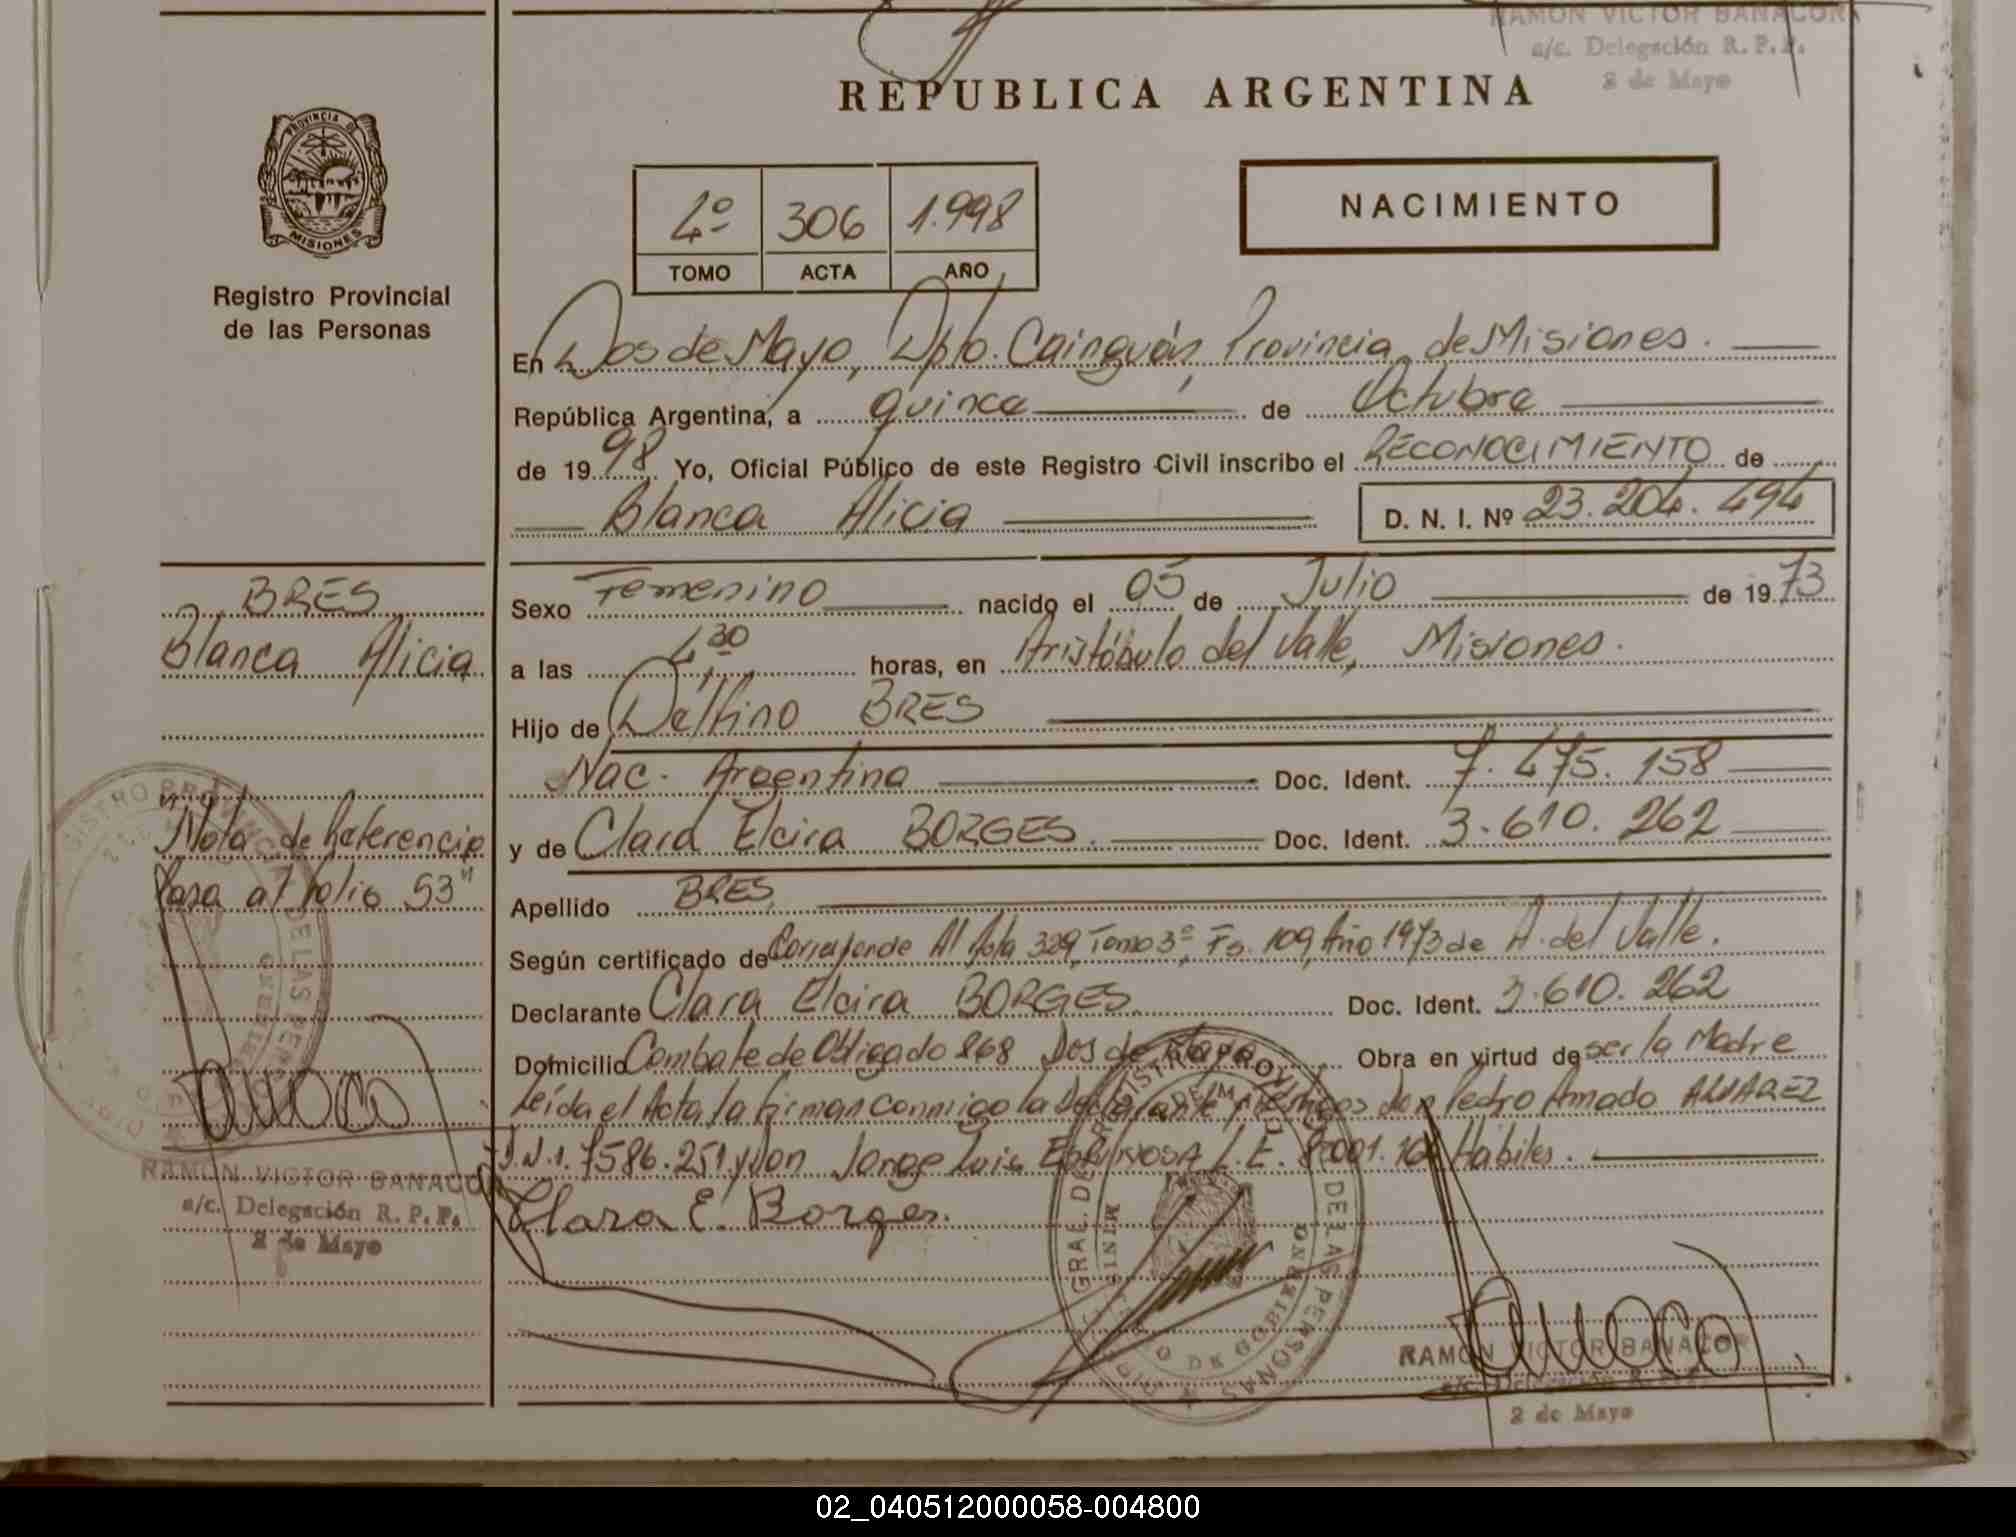 RAMON VICTOR BANACOR
a/c. Delegación R. P. P.
2 de Mayo
REPUBLICA ARGENTINA
PROVINCIA DE
MISIONES
Registro Provincial
de las Personas
4º 306 1.998
TOMO ACTA AÑO
NACIMIENTO
En Dos de Mayo, Dpto. Cainguás, Provincia de Misiones.
República Argentina, a quince de Octubre
de 1998 Yo, Oficial Público de este Registro Civil inscribo el RECONOCIMIENTO de
Blanca Alicia D. N. I. Nº 23.204.494
BRES
Blanca Alicia
"Nota de Referencia
Pasa al folio 53"
RAMON VICTOR BANACOR
a/c. Delegación R. P. P.
2 de Mayo
Sexo Femenino nacido el 05 de Julio de 1973
a las 4,30 horas, en Aristóbulo del Valle, Misiones.
Hijo de Délfino BRES
Nac. Argentina Doc. Ident. 7.475.158
y de Clara Elcira BORGES. Doc. Ident. 3.610.262
Apellido BRES
Según certificado de Corresponde Al Acta 329, Tomo 3º, Fs. 109, Año 1973 de A. del Valle.
Declarante Clara Elcira BORGES. Doc. Ident. 3.610.262
Domicilio Combate de Obligado 868 Dos de Mayo Obra en virtud de ser la Madre
Leída el Acta la firman conmigo la Declarante y testigos don Pedro Amado ALVAREZ
D.N.I. 7586.251 y don Jorge Luis ESPINOSA L.E. Hábiles.
Clara E. Borges.
RAMON VICTOR BANACOR
a/c. Delegación R. P. P.
2 de Mayo
02_040512000058-004800